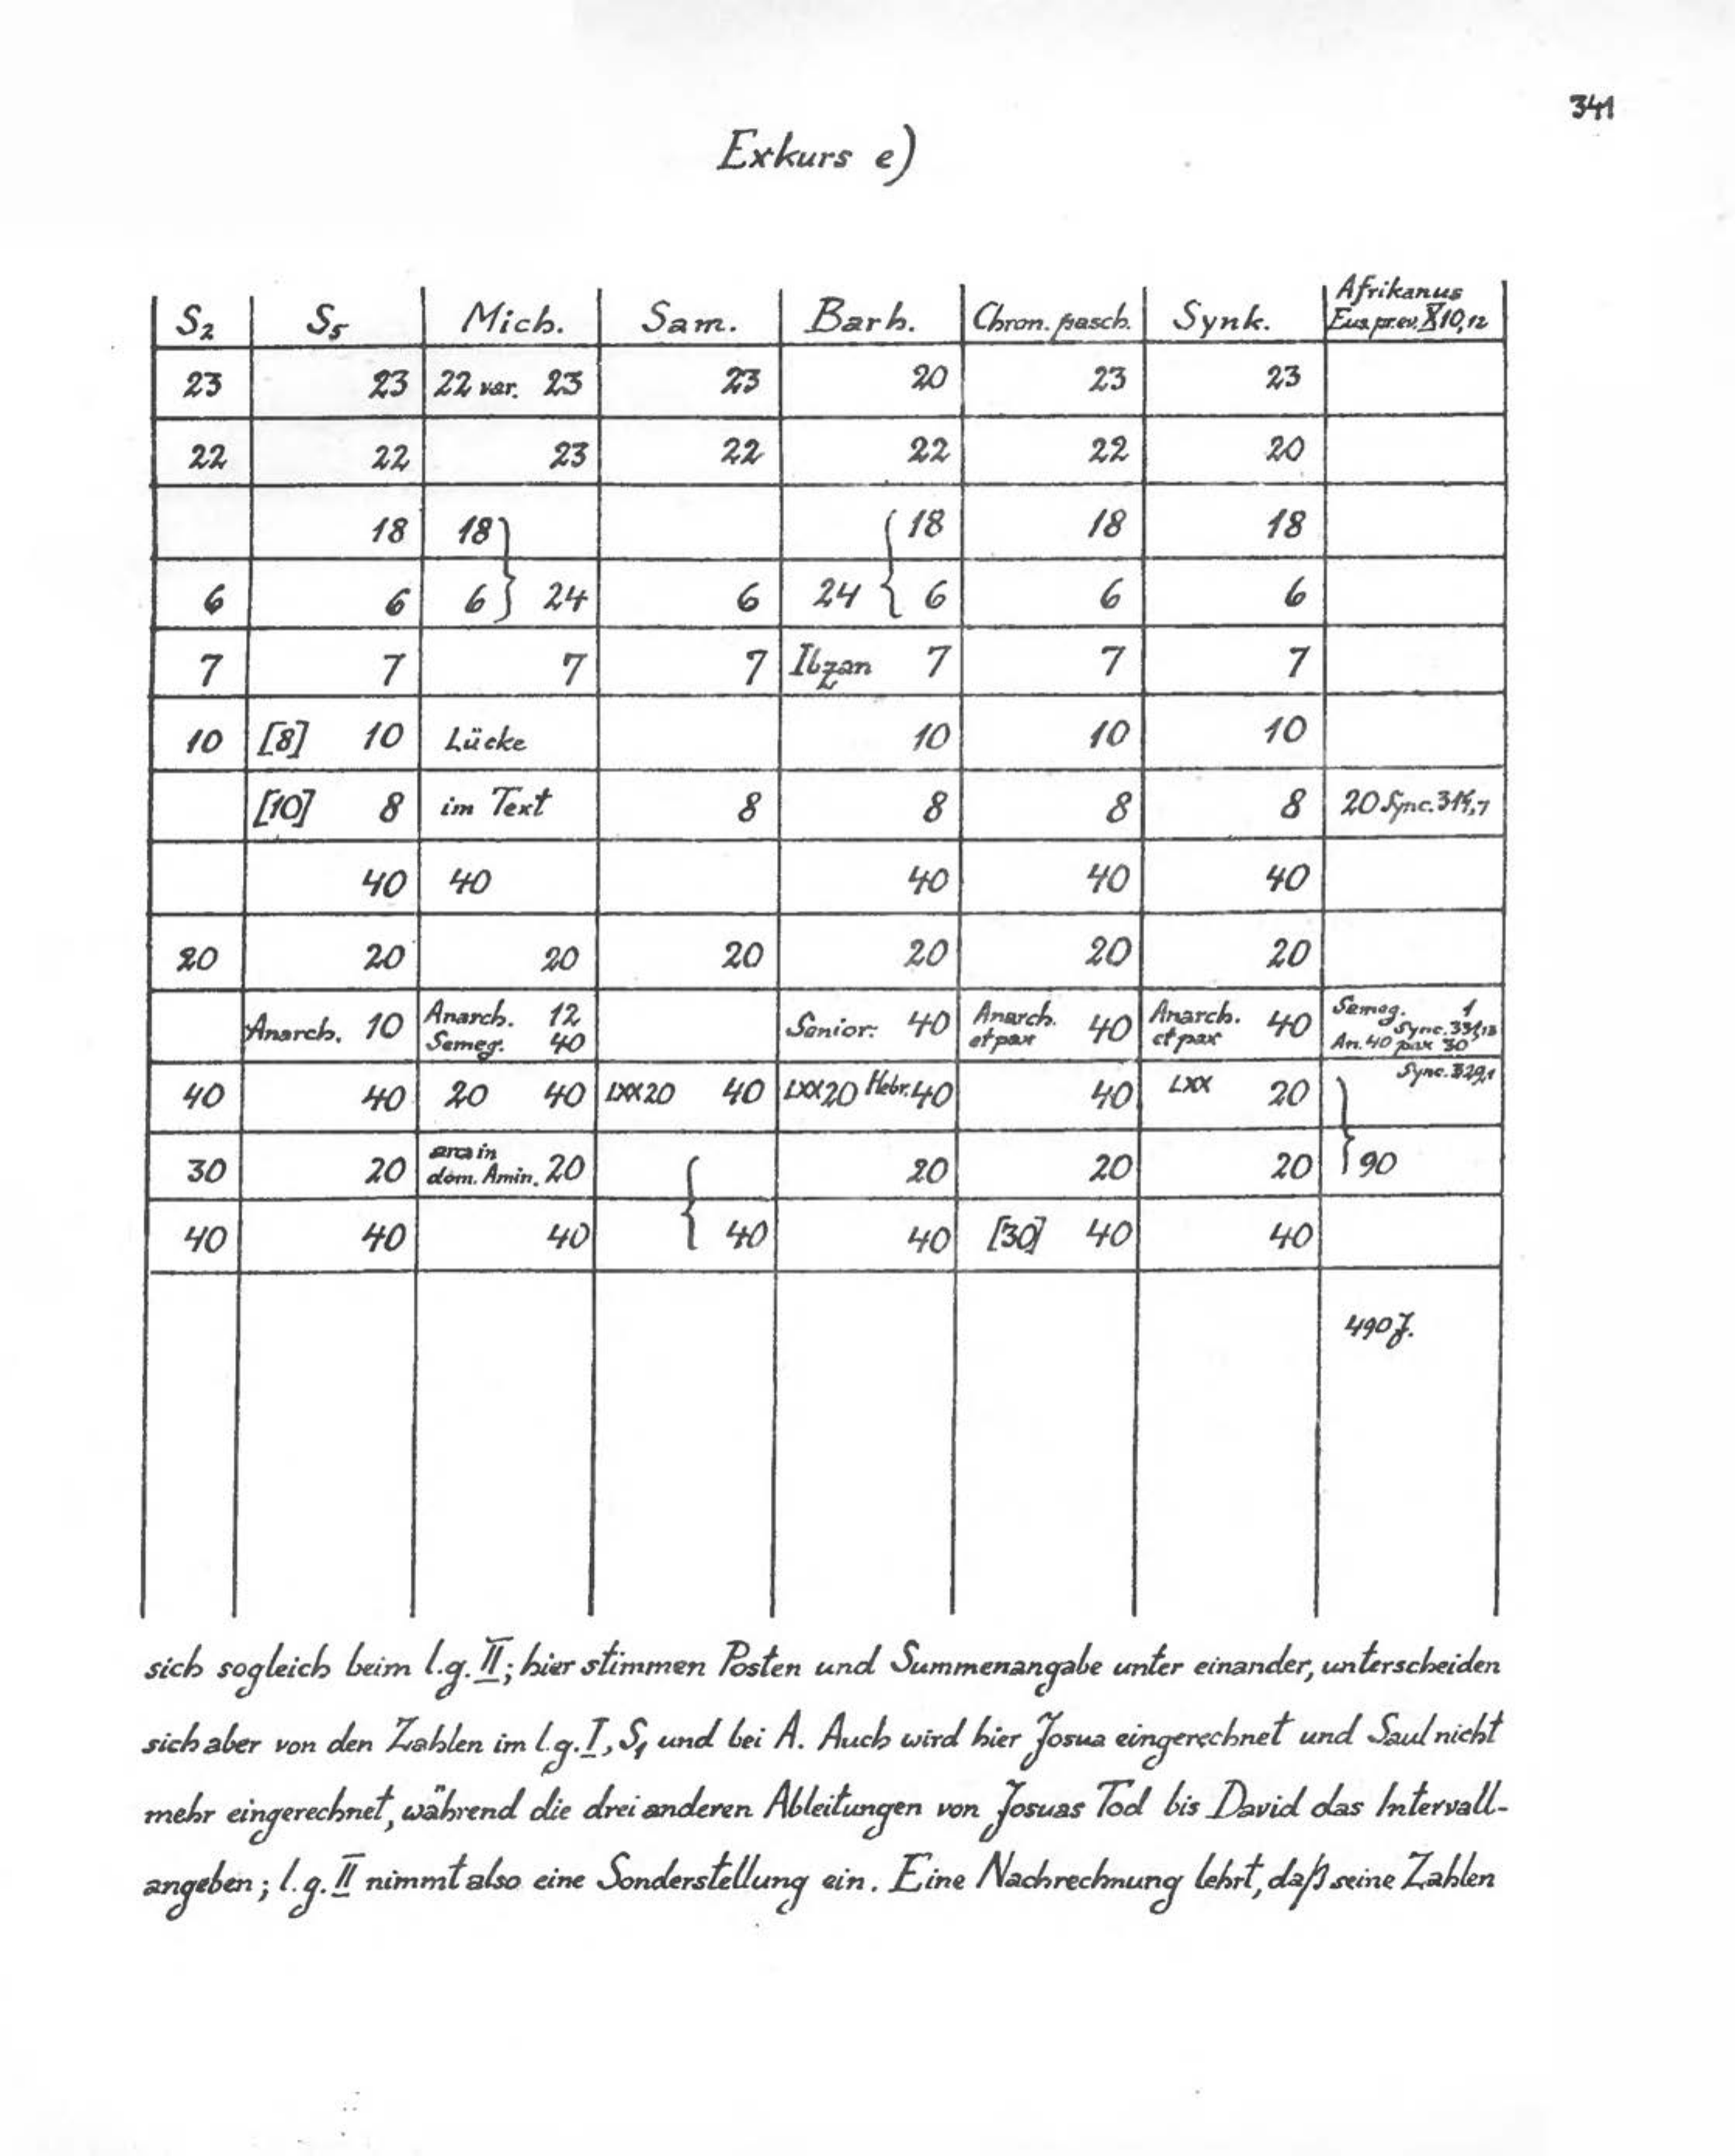 341
Exkurs e)
S2 S5 Mich. Sam. Barh. Chron. pasch. Synk. Afrikanus
Eus. pr. ev. X 10,12
23 23 22 var. 23 23 20 23 23
22 22 23 22 22 22 20
18 18 } { 18 18 18
6 6 6 } 24 6 24 { 6 6 6
7 7 7 7 Ibzan 7 7 7
10 [8] 10 Lücke 10 10 10
[10] 8 im Text 8 8 8 8 20 Sync.
40 40 40 40 40
20 20 20 20 20 20 20
Anarch. 10 Anarch. 12 Senior: 40 Anarch. 40 Anarch. 40 Semeg. 1
Semeg. 40 et pax et pax Sync.
An. 40 pax 30
40 40 20 40 LXX 20 40 LXX 20 Hebr. 40 40 LXX 20 } Sync. 329,1
30 20 arca in
dom. Amin. 20 { 20 20 20 } 90
40 40 40 { 40 40 [30] 40 40
490 J.
sich sogleich beim l.g. II; hier stimmen Posten und Summenangabe unter einander, unterscheiden
sich aber von den Zahlen im l.g. I, S1 und bei A. Auch wird hier Josua eingerechnet und Saul nicht
mehr eingerechnet, während die drei anderen Ableitungen von Josuas Tod bis David das Intervall-
angeben; l.g. II nimmt also eine Sonderstellung ein. Eine Nachrechnung lehrt, daß seine Zahlen